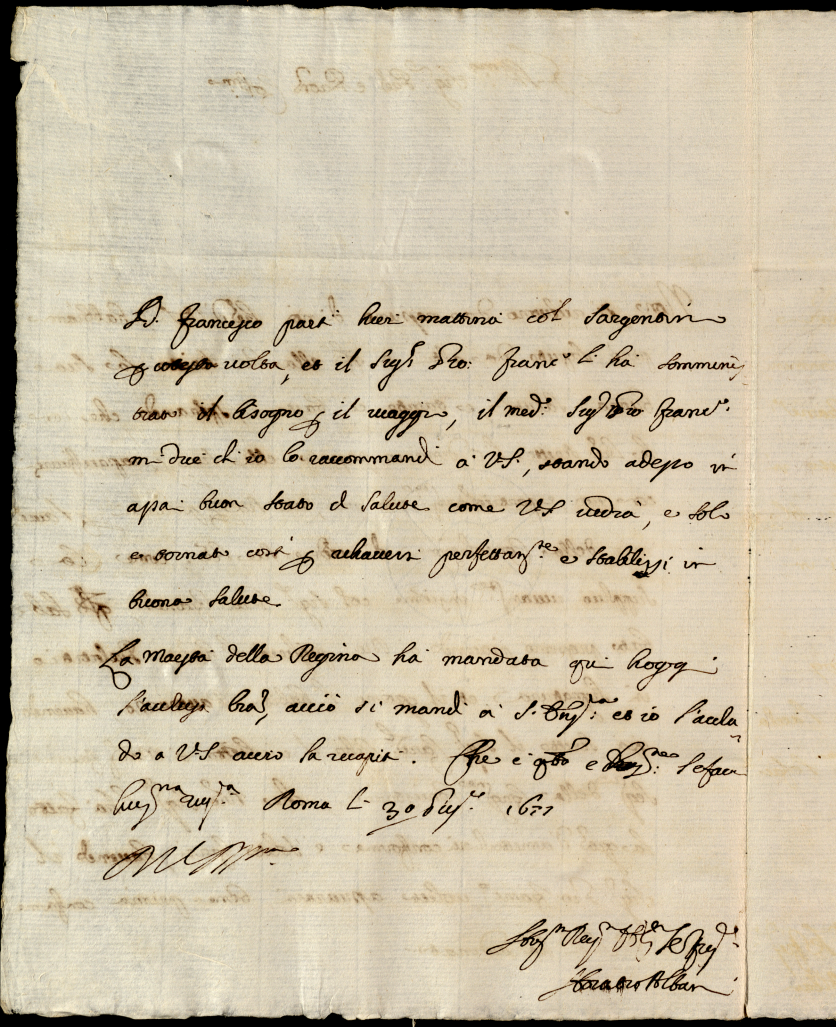 D. Francesco partì hier mattina col Sargentin
volta, et il Sig.r Gio: Franc.o li ha sommini
trato il bisogno p il viaggio, il med.o Sig.r Gio Franc.o
m dice ch io lo raccommandi à V.S., stando adesso in
assai buon stato di salute come VS vedrà, e solo
è tornato costì p rihaversi perfettam.te e stabilirsi in
buona salute.
La Maestà della Regina ha mandata qui hoggi
l'acclusa acciò si mandi à S. et io l'acclu
do a VS acciò la recapiti. Che è q.to e
Roma li 30 1677
Horatio Albani